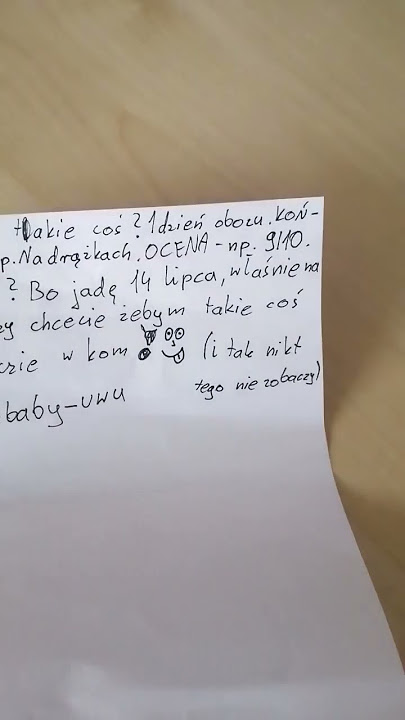 takie coś? 1 dzień obozu. KOŃ-
p. Na drążkach. OCENA - np. 9/10.
? Bo jadę 14 lipca, właśnie na
y chcecie żebym takie coś
cie w kom (i tak nikt
tego nie zobaczy)
baby-uwu